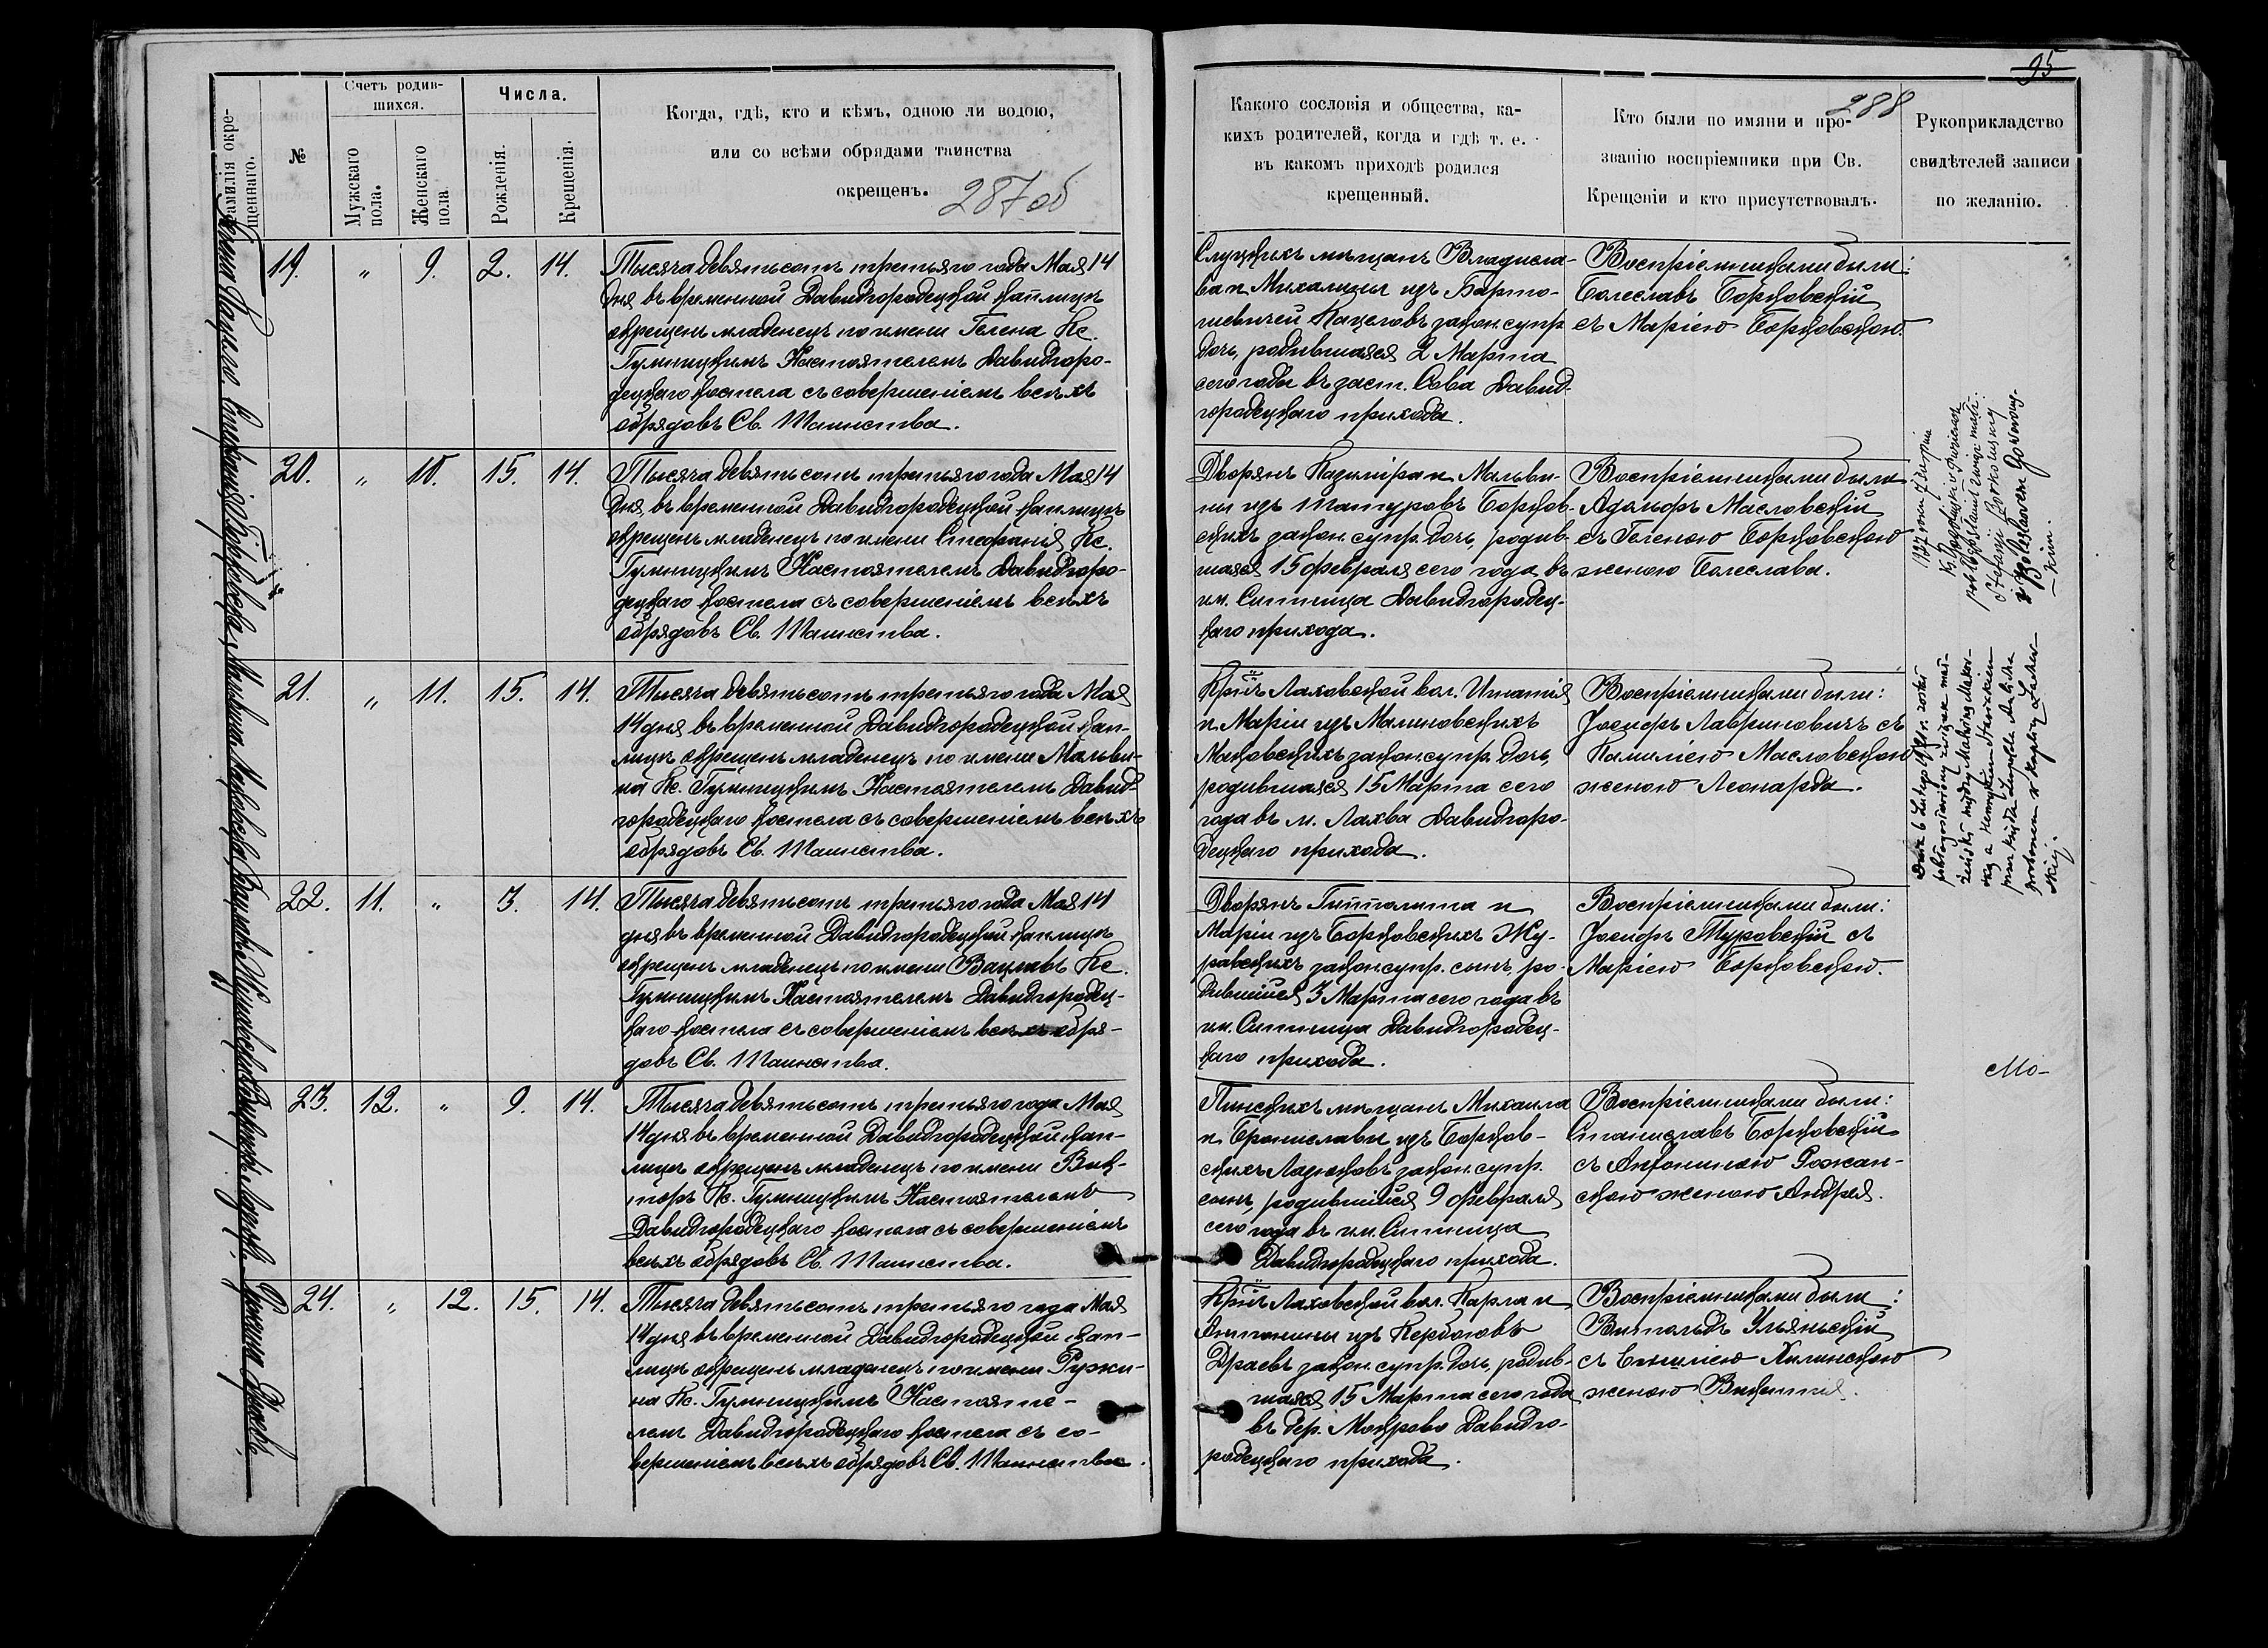 95
288
Фамилія окре-
щеннаго.
№
Счетъ родив-
шихся.
Мужскаго
пола.
Женскаго
пола
Числа.
Рожденія.
Крещенія.
Когда, гдѣ, кто и кѣмъ, одною ли водою,
или со всѣми обрядами таинства
окрещенъ.
287 об
Какого сословія и общества, ка-
кихъ родителей, когда и гдѣ т. е.
въ какомъ приходѣ родился
крещенный.
Кто были по имяни и про-
званію воспріемники при Св.
Крещэніи и кто присутствовалъ.
Рукоприкладство
свидѣтелей записи
по желанію.
19. " 9. 2. 14.
Тысяча девятьсотъ третьяго года Мая 14
дня въ временной Давидгородецкой каплицѣ
окрещенъ младенецъ по имени Гелена Кс.
Гумницкимъ Настоятелемъ Давидгоро-
децкаго костела съ совершеніемъ всѣхъ
обрядовъ Св. Таинства.
Слуцкихъ мѣщанъ Владисла-
ва и Михалины изъ Барто-
шевичей Кацеловъ закон. супр.
дочь, родившаяся 2 Марта
сего года въ заст. Сова Давид-
городецкаго прихода.
Воспріемниками были:
Болеславъ Борковскій
съ Маріею Борковскою.
20. " 10. 15. 14.
Тысяча девятьсотъ третьяго года Мая 14
дня, въ временной Давидгородецкой каплицѣ
окрещенъ младенецъ по имени Стефанія Кс.
Гумницкимъ Настоятелемъ Давидгоро-
децкаго костела съ совершеніемъ всѣхъ
обрядовъ Св. Таинства.
Дворянъ Казиміра и Мальви-
ны изъ Татуровъ Борков-
скихъ закон. супр. дочь, родив-
шаяся 15 февраля сего года въ
им. Ситница Давидгородец-
каго прихода.
Воспріемниками были
Адольфъ Масловскій
съ Геленою Борковскою
женою Болеслава.
21. " 11. 15. 14.
Тысяча девятьсотъ третьяго года Мая
14 дня въ временной Давидгородецкой кап-
лицѣ окрещенъ младенецъ по имени Мальви-
на Кс. Гумницкимъ Настоятелемъ Давид-
городецкаго костела съ совершеніемъ всѣхъ
обрядовъ Св. Таинства.
Кр-нъ Лаховской вол. Игнатія
и Маріи изъ Малиновскихъ
Маковскихъ закон. супр. дочь,
родившаяся 15 Марта сего
года въ м. Лахва Давидгоро-
децкаго прихода.
Воспріемниками были:
Іосифъ Лавриновичъ съ
Камиліею Масловскою
женою Леонарда.
22. 11. " 3. 14.
Тысяча девятьсотъ третьяго года Мая 14
дня въ временной Давидгородецкой каплицѣ
окрещенъ младенецъ по имени Вацлавъ Кс.
Гумницкимъ Настоятелемъ Давидгородец-
каго костела съ совершеніемъ всѣхъ обря-
довъ Св. Таинства.
Дворянъ Гипполита и
Маріи изъ Борковскихъ Жу-
равскихъ закон. супр. сынъ, ро-
дившійся 3 Марта сего года въ
им. Ситница Давидгородец-
каго прихода.
Воспріемниками были:
Іосифъ Туровскій съ
Маріею Борковскою.
Мо-
23. 12. " 9. 14.
Тысяча девятьсотъ третьяго года Мая
14 дня въ временной Давидгородецкой кап-
лицѣ окрещенъ младенецъ по имени Вик-
торъ Кс. Гумницкимъ Настоятелемъ
Давидгородецкаго костела съ совершеніемъ
всѣхъ обрядовъ Св. Таинства.
Пинскихъ мѣщанъ Михаила
и Брониславы изъ Борков-
скихъ закон. супр.
сынъ, родившійся 9 февраля
сего года въ им. Ситница
Давидгородецкаго прихода.
Воспріемниками были:
Станиславъ Борковскій
съ Антониною Рожан-
скою женою Андрея.
24. " 12. 15. 14.
Тысяча девятьсотъ третьяго года Мая
14 дня въ временной Давидгородецкой кап-
лицѣ окрещенъ младенецъ по имени Ружи-
на Кс. Гумницкимъ Настояте-
лемъ Давидгородецкаго костела съ со-
вершеніемъ всѣхъ обрядовъ Св. Таинства.
Кр-нъ Лаховской вол. Карла и
Антонины изъ
закон. супр. дочь, родив-
шаяся 15 Марта сего года
въ дер. Мокрово Давидго-
родецкаго прихода.
Воспріемниками были:
Витольдъ Ульянскій
съ Емиліею Хилинскою
женою Викентія.